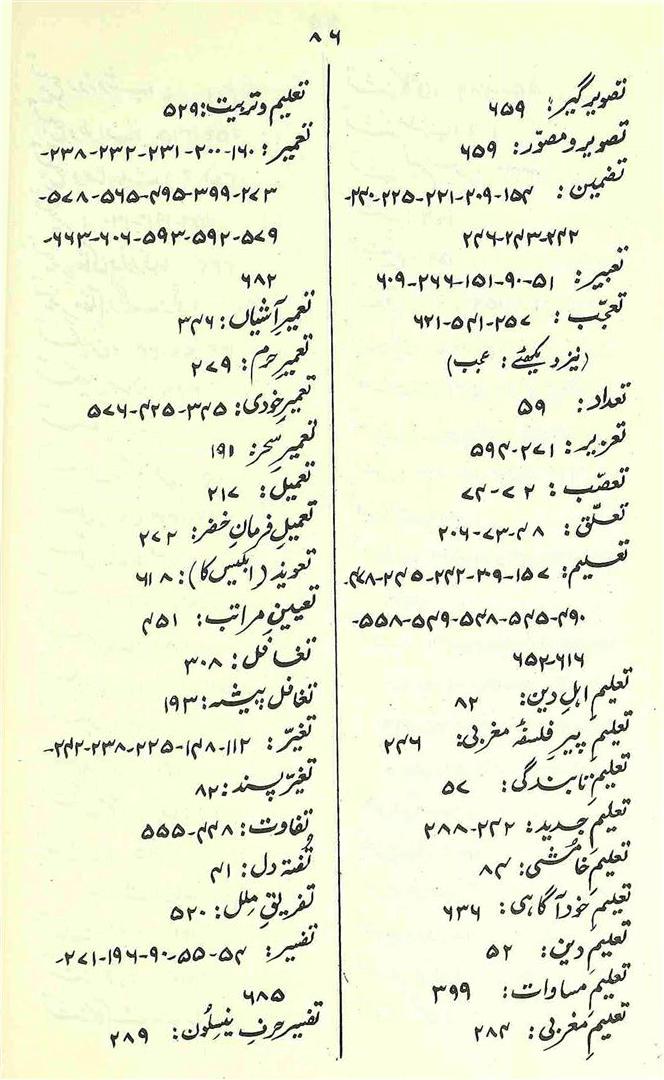 ۸۶
تصویر گیر: ۶۵۹
تصویر و مصوّر: ۶۵۹
تضمین: ۱۵۴-۲۰۹-۲۲۱-۲۲۵-۲۴۰-
۲۴۲-۲۴۳-۲۴۶
تعبیر: ۵۱-۹۰-۱۵۱-۲۶۶-۶۰۹
تعجّب: ۲۵۷-۵۴۱-۶۲۱
(نیز دیکھئے: عجب)
تعداد: ۵۹
تعزیر: ۲۷۱-۵۹۴
تعصّب: ۷۲-۷۴
تعلّق: ۴۸-۷۳-۲۰۶
تعلیم: ۱۵۷-۳۰۹-۲۴۲-۲۴۵-۴۷۸-
۴۹۰-۵۴۵-۵۴۸-۵۴۹-۵۵۸-
۶۱۶-۶۵۲
تعلیمِ اہلِ دین: ۸۲
تعلیمِ پیرِ فلسفۂ مغربی: ۲۴۶
تعلیمِ تابندگی: ۵۷
تعلیمِ جدید: ۲۴۲-۲۸۸
تعلیمِ خامُشی: ۸۴
تعلیمِ خود آگاہی: ۶۳۶
تعلیمِ دین: ۵۲
تعلیمِ مساوات: ۳۹۹
تعلیمِ مغربی: ۲۸۴
تعلیم و تربیت: ۵۲۹
تعمیر: ۱۶۰-۲۰۰-۲۳۱-۲۳۲-۲۳۸-
۲۷۳-۳۹۹-۴۹۵-۵۶۵-۵۷۸-
۵۷۹-۵۹۲-۵۹۳-۶۰۶-۶۶۳-
۶۸۲
تعمیرِ آشیاں: ۳۴۶
تعمیرِ حرم: ۲۷۹
تعمیرِ خودی: ۳۴۵-۴۲۵-۵۷۶
تعمیرِ سحر: ۱۹۱
تعمیل: ۲۱۷
تعمیلِ فرمانِ خضر: ۲۷۲
تعویذ (ابلیس کا): ۶۱۸
تعیینِ مراتب: ۴۵۱
تغافل: ۳۰۸
تغافل پیشہ: ۱۹۳
تغیّر: ۱۱۲-۱۴۸-۲۲۵-۲۳۸-۲۴۲-
تغیّر پسند: ۸۲
تفاوت: ۴۴۸-۵۵۵
تُفتہ دل: ۴۱
تفریقِ مِلل: ۵۲۰
تفسیر: ۵۴-۵۵-۹۰-۱۹۶-۲۷۱-
۶۸۵
تفسیرِ حرفِ یَنسِلُون: ۲۸۹